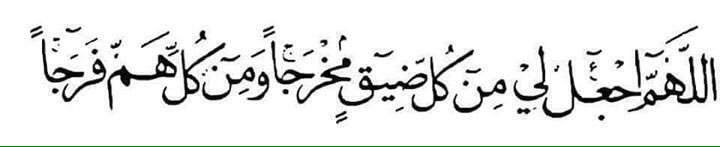 اللَّهُمَّ اجْعَلْ لِي مِنَ كُلِّ ضِيقٍ مَخْرَجًا وَمِنَ كُلِّ هَمٍّ فَرَجًا